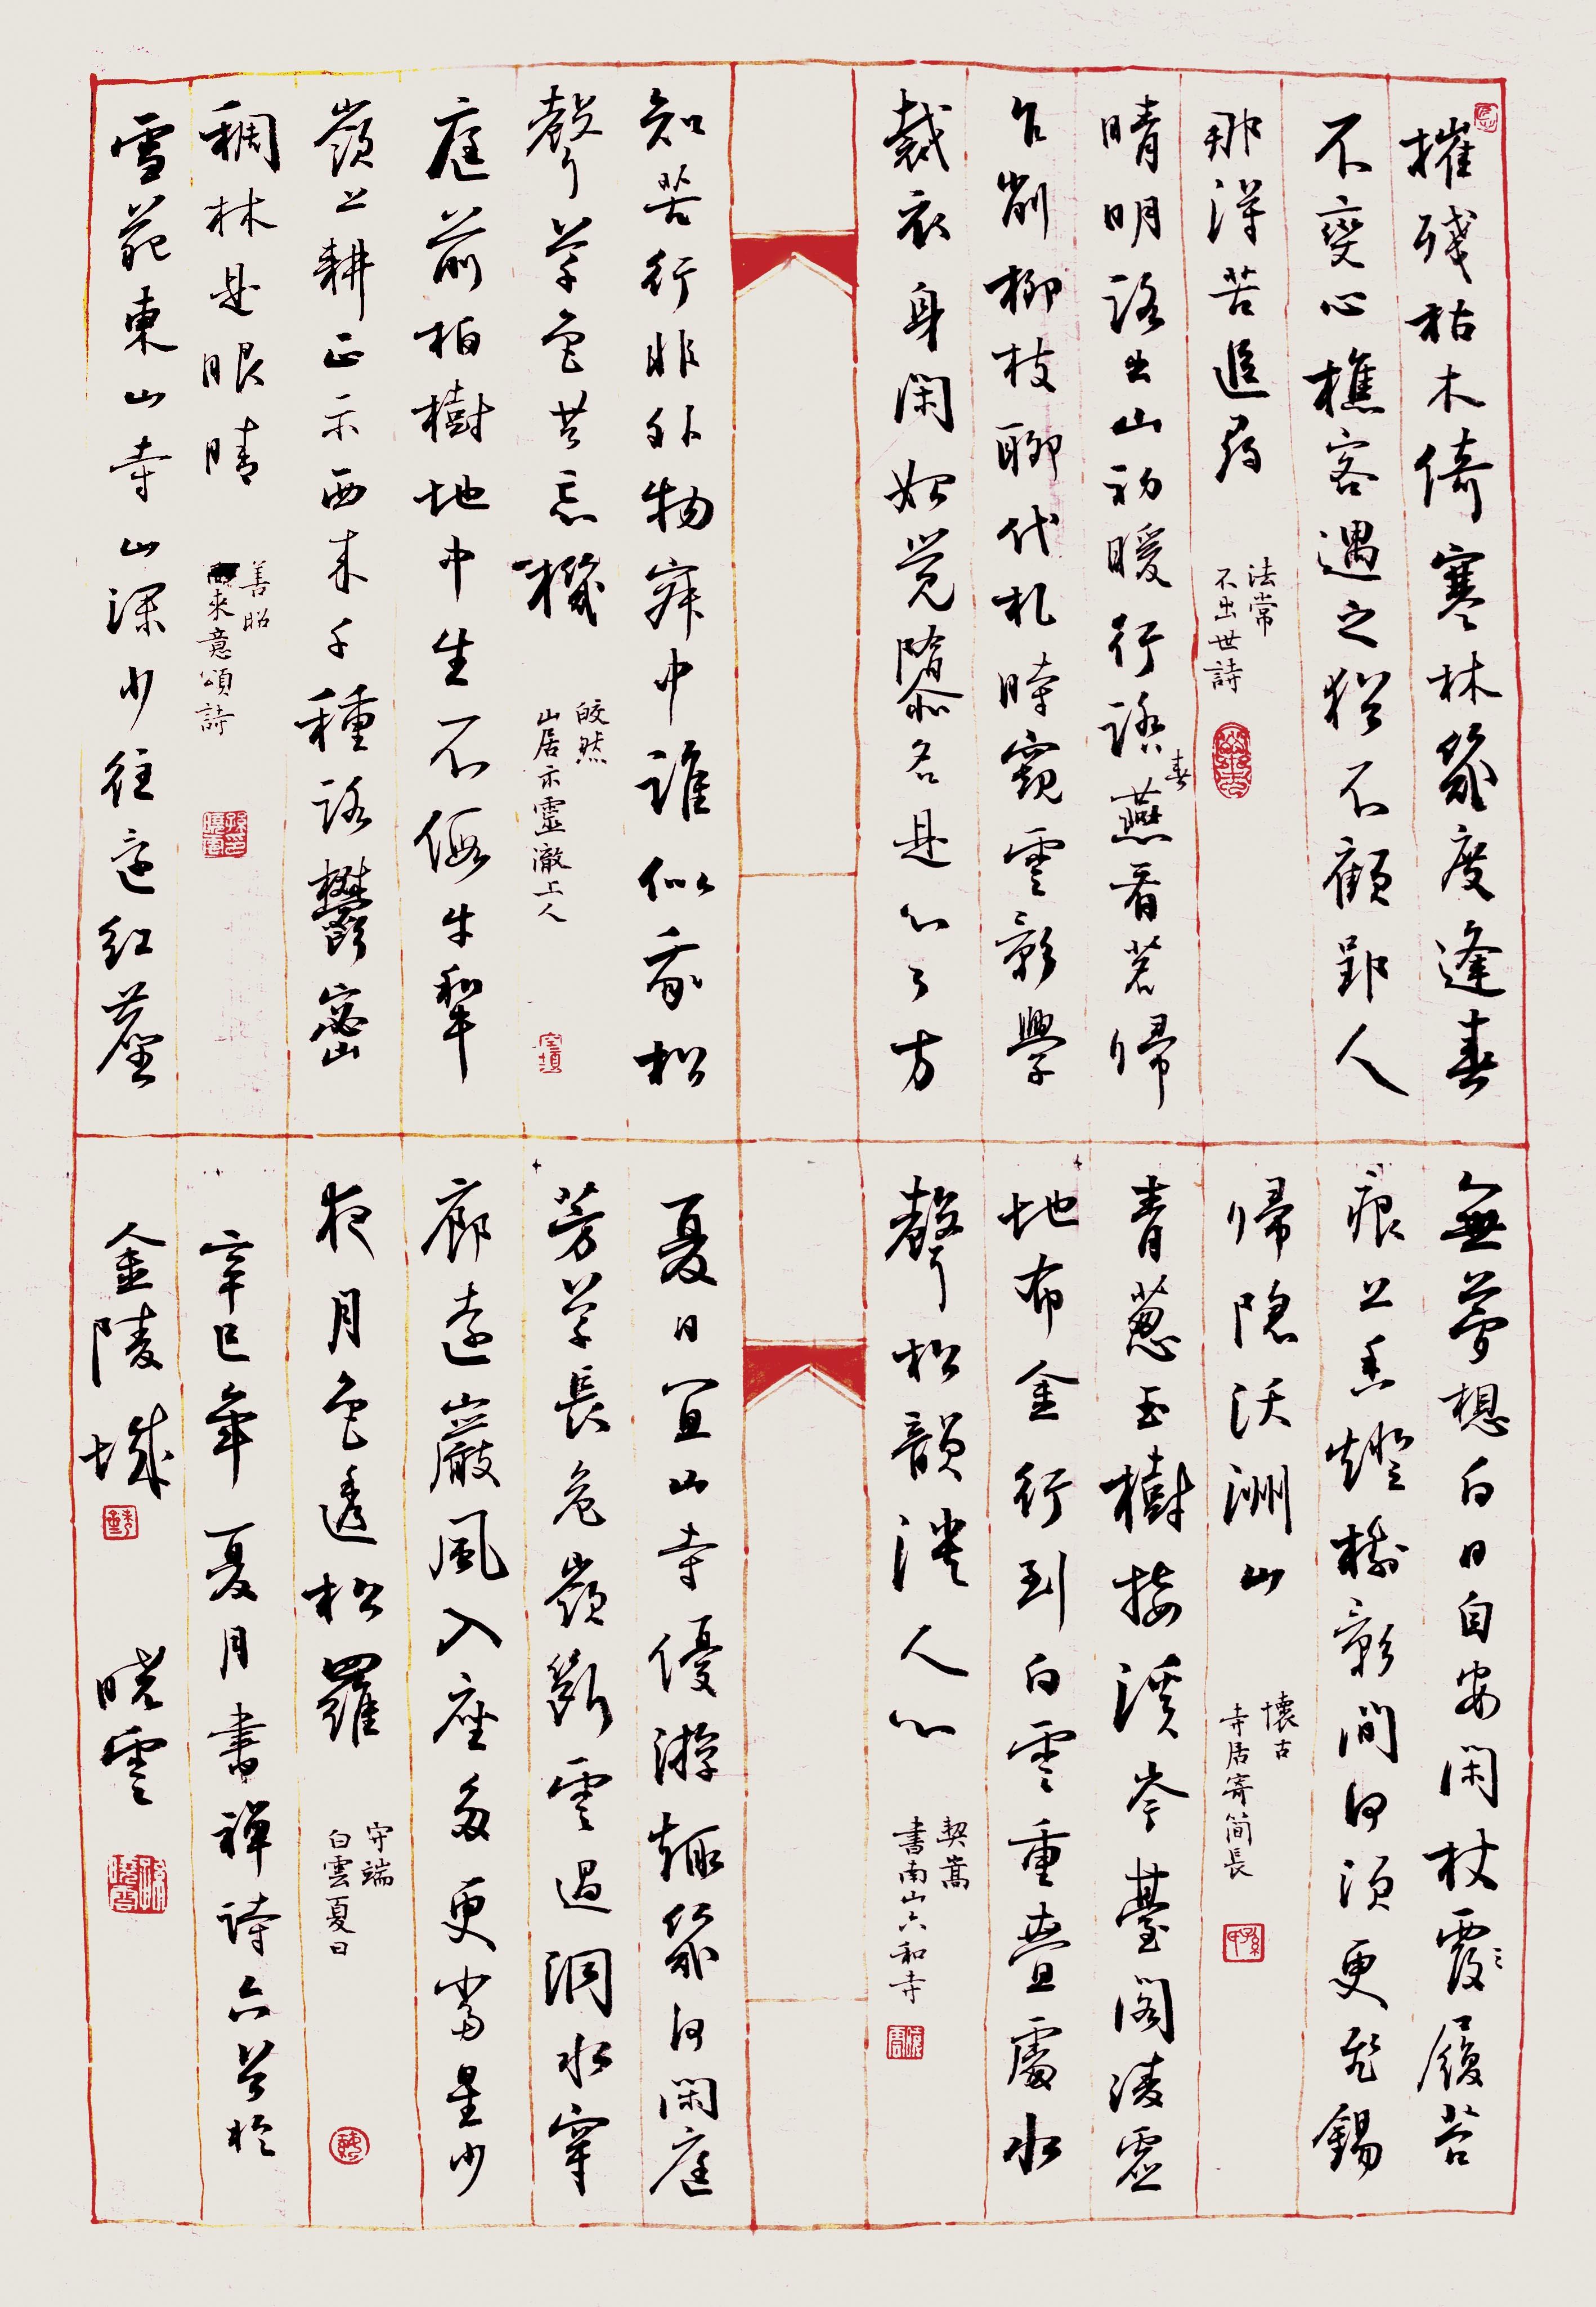 摧殘枯木倚寒林幾度逢春
不變心樵客遇之猶不顧郢人
那得苦追尋
法常
不出世詩
晴明路出山初暖行踏春蕪看茗歸
乍削柳枝聊代札時窺雲影學
裁衣身閑始覺隳名是心了方
知苦行非外物寂中誰似我松
聲草色共忘機
皎然
山居示靈澈上人
庭前柏樹地中生不假牛犁
嶺上耕正示西來千種路鬱密
稠林是眼睛
善昭
來意頌詩
雪苑東山寺山深少往還紅塵
無夢想白日自安閑杖履苔
痕上香燈樹影間何須更飛錫
歸隱沃洲山
懷古
寺居寄簡長
青蔥玉樹接溪岑臺閣凌虛
地布金行到白雲重疊處水
聲松韻淡人心
契嵩
書南山六和寺
夏日宜山寺優游趣幾何閑庭
芳草長危嶺斷雲過澗水穿
廊遶巖風入座多更當星少
夜月色透松羅
守端
白雲夏日
辛巳年夏月書禪詩六首於
金陵城 曉雲